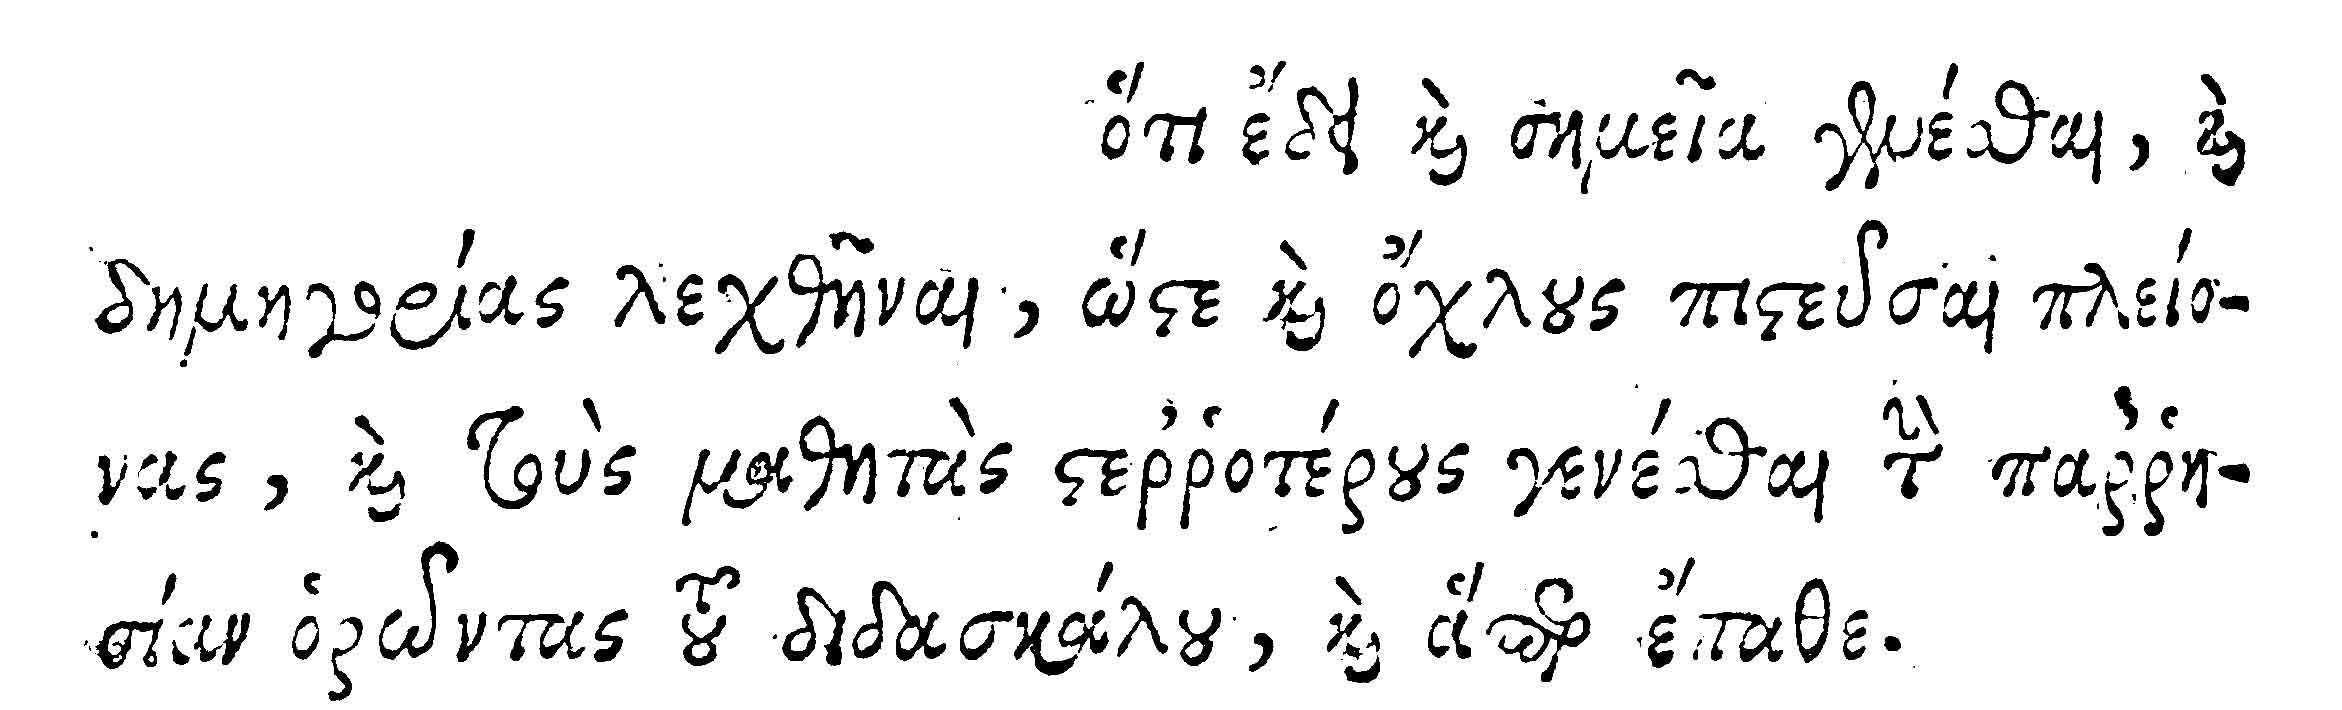 ὅτι ἔδει καὶ σημεῖα γενέσθαι, καὶ
δημηγορίας λεχθῆναι, ὥστε καὶ ὄχλους πιστεῦσαι πλείο-
νας, καὶ τοὺς μαθητὰς στεῤῥοτέρους γενέσθαι τὴν παῤῥη-
σίαν ὁρῶντας τοῦ διδασκάλου, καὶ ἅπερ ἔπαθε.